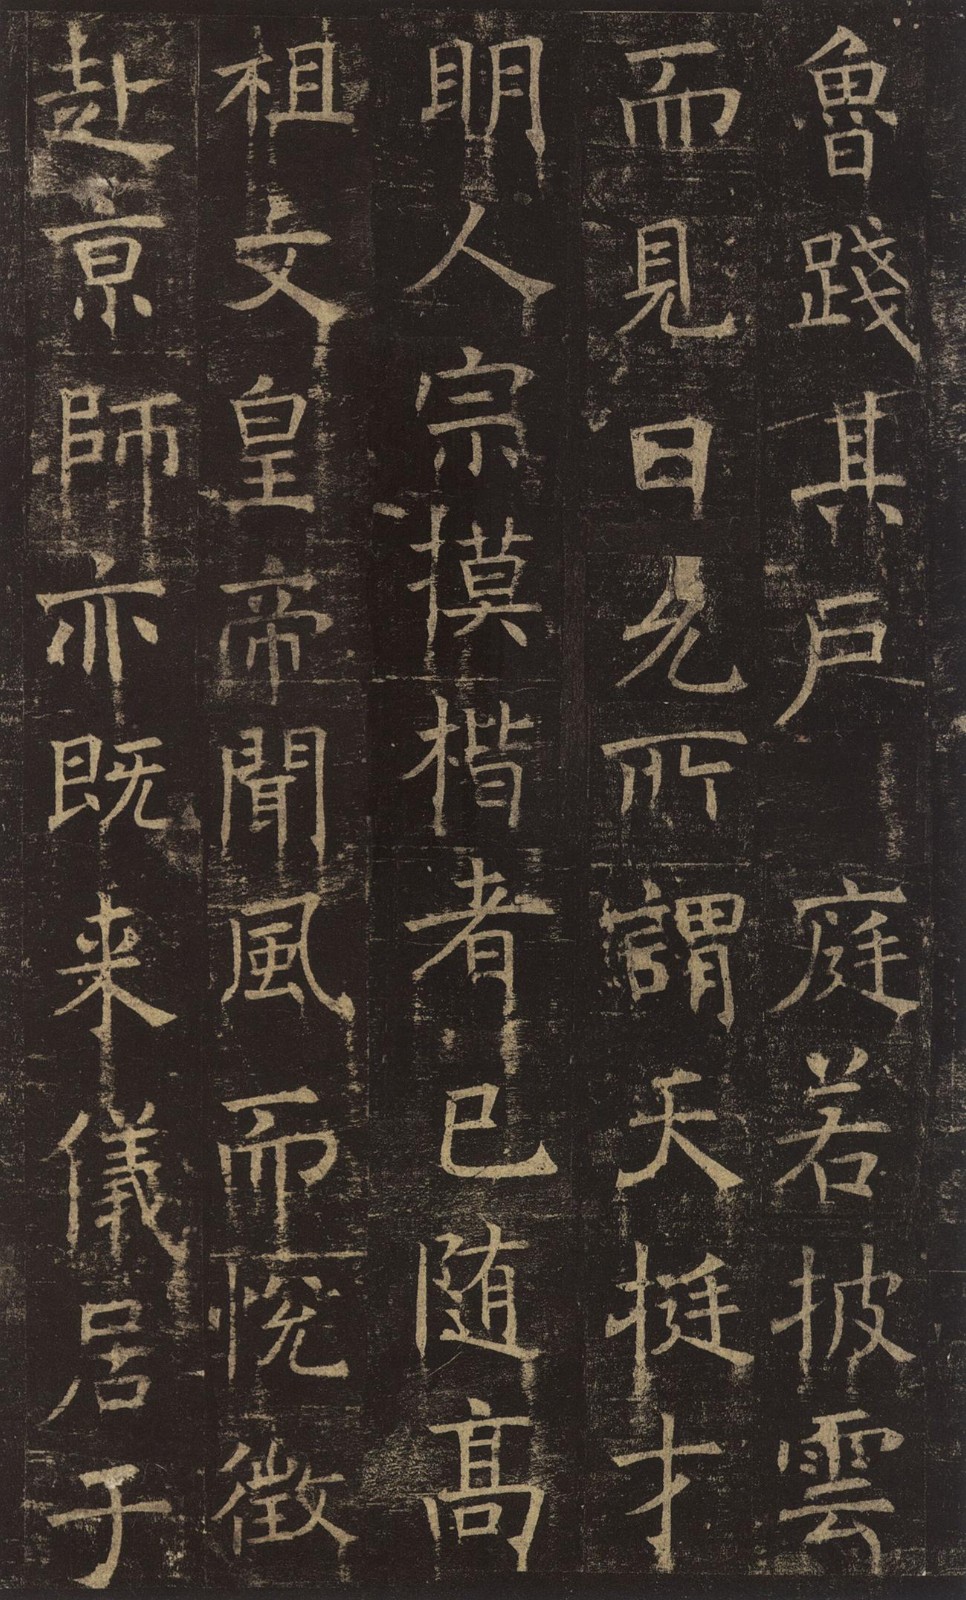 魯踐其戶庭若披雲
而見日凢所謂天挺才
明人宗摸楷者已随髙
祖文皇帝聞風而悅徵
赴京師亦既来儀居子